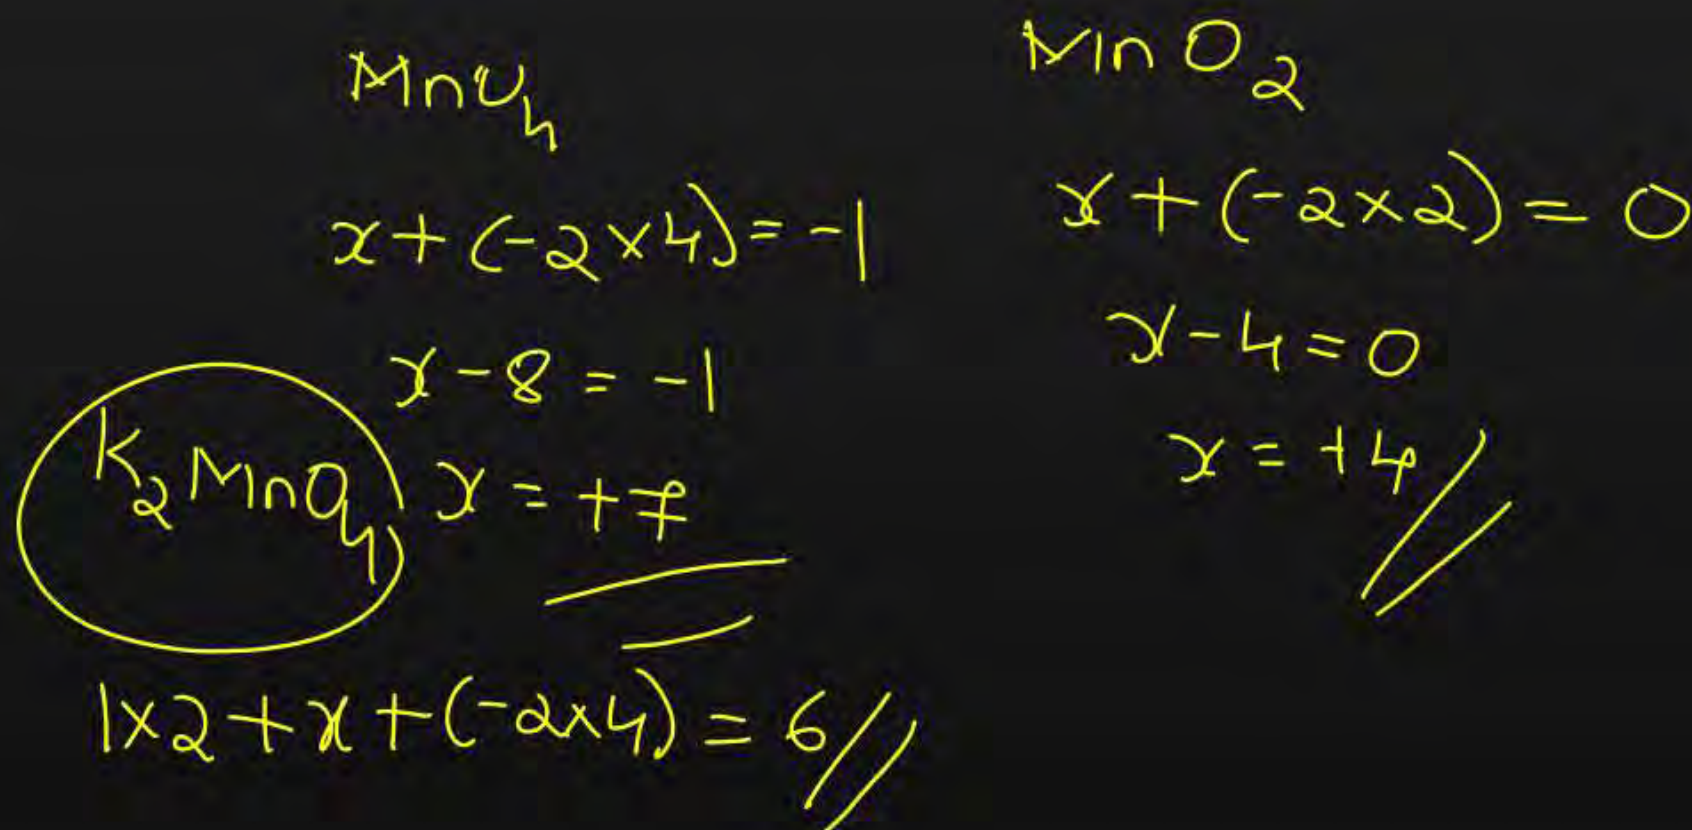 MnO₄
x + (-2 × 4) = -1
x - 8 = -1
x = +7
K₂MnO₄
1×2 + x + (-2×4) = 6
MnO₂
x + (-2×2) = 0
x - 4 = 0
x = +4